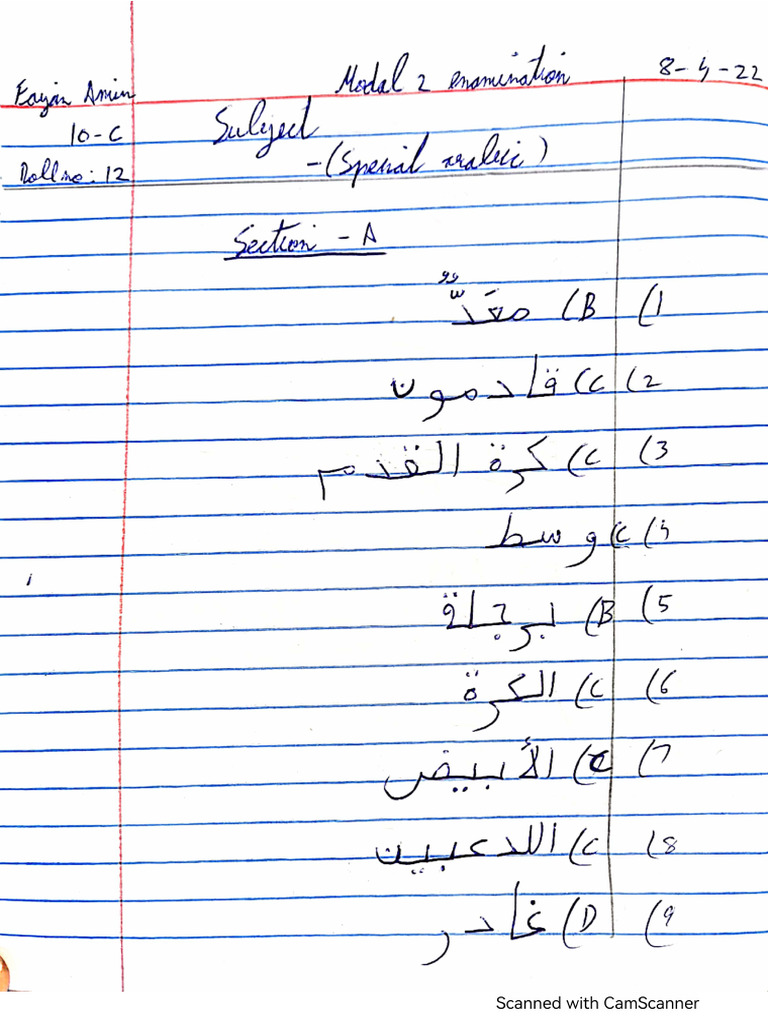 Modal 2 examination
8-4-22
Faizan Amin
10-C
Roll no: 12
Subject
-(Special arabic)
Section - A
1) B) معَدٌّ
2) C) قادمون
3) C) كرة القدم
4) C) وسط
5) B) برجلة
6) C) الكرة
7) C) الأبيض
8) C) اللاعبين
9) D) غادر
Scanned with CamScanner